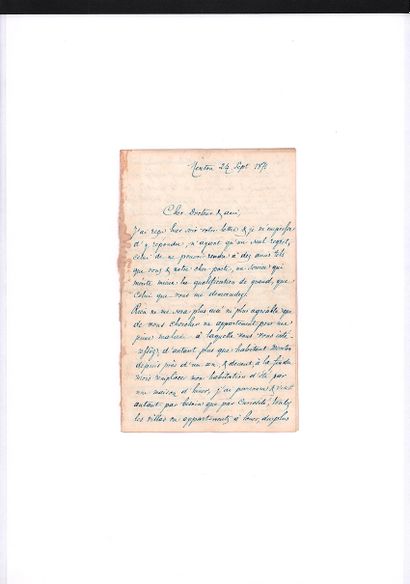 Menton 24 Sept 187
Cher Docteur & ami,
J'ai reçu hier soir votre lettre & je m'empresse
d'y répondre, n'ayant qu'un seul regret,
celui de ne pouvoir rendre à des amis tels
que vous & notre cher poète, un service qui
mérite mieux la qualification de grand, que
celui que vous me demandez.
Rien ne me sera plus aisé ni plus agréable que
de vous chercher un appartement pour une
jeune malade à laquelle vous vous
d'autant plus que habitant Menton
depuis près d'un an, & devant, à la fin du
mois remplacer mon habitation d'été par
une maison d'hiver, j'ai parcouru &
autant par besoin que par curiosité, toutes
les villas ou appartements à louer, des plus